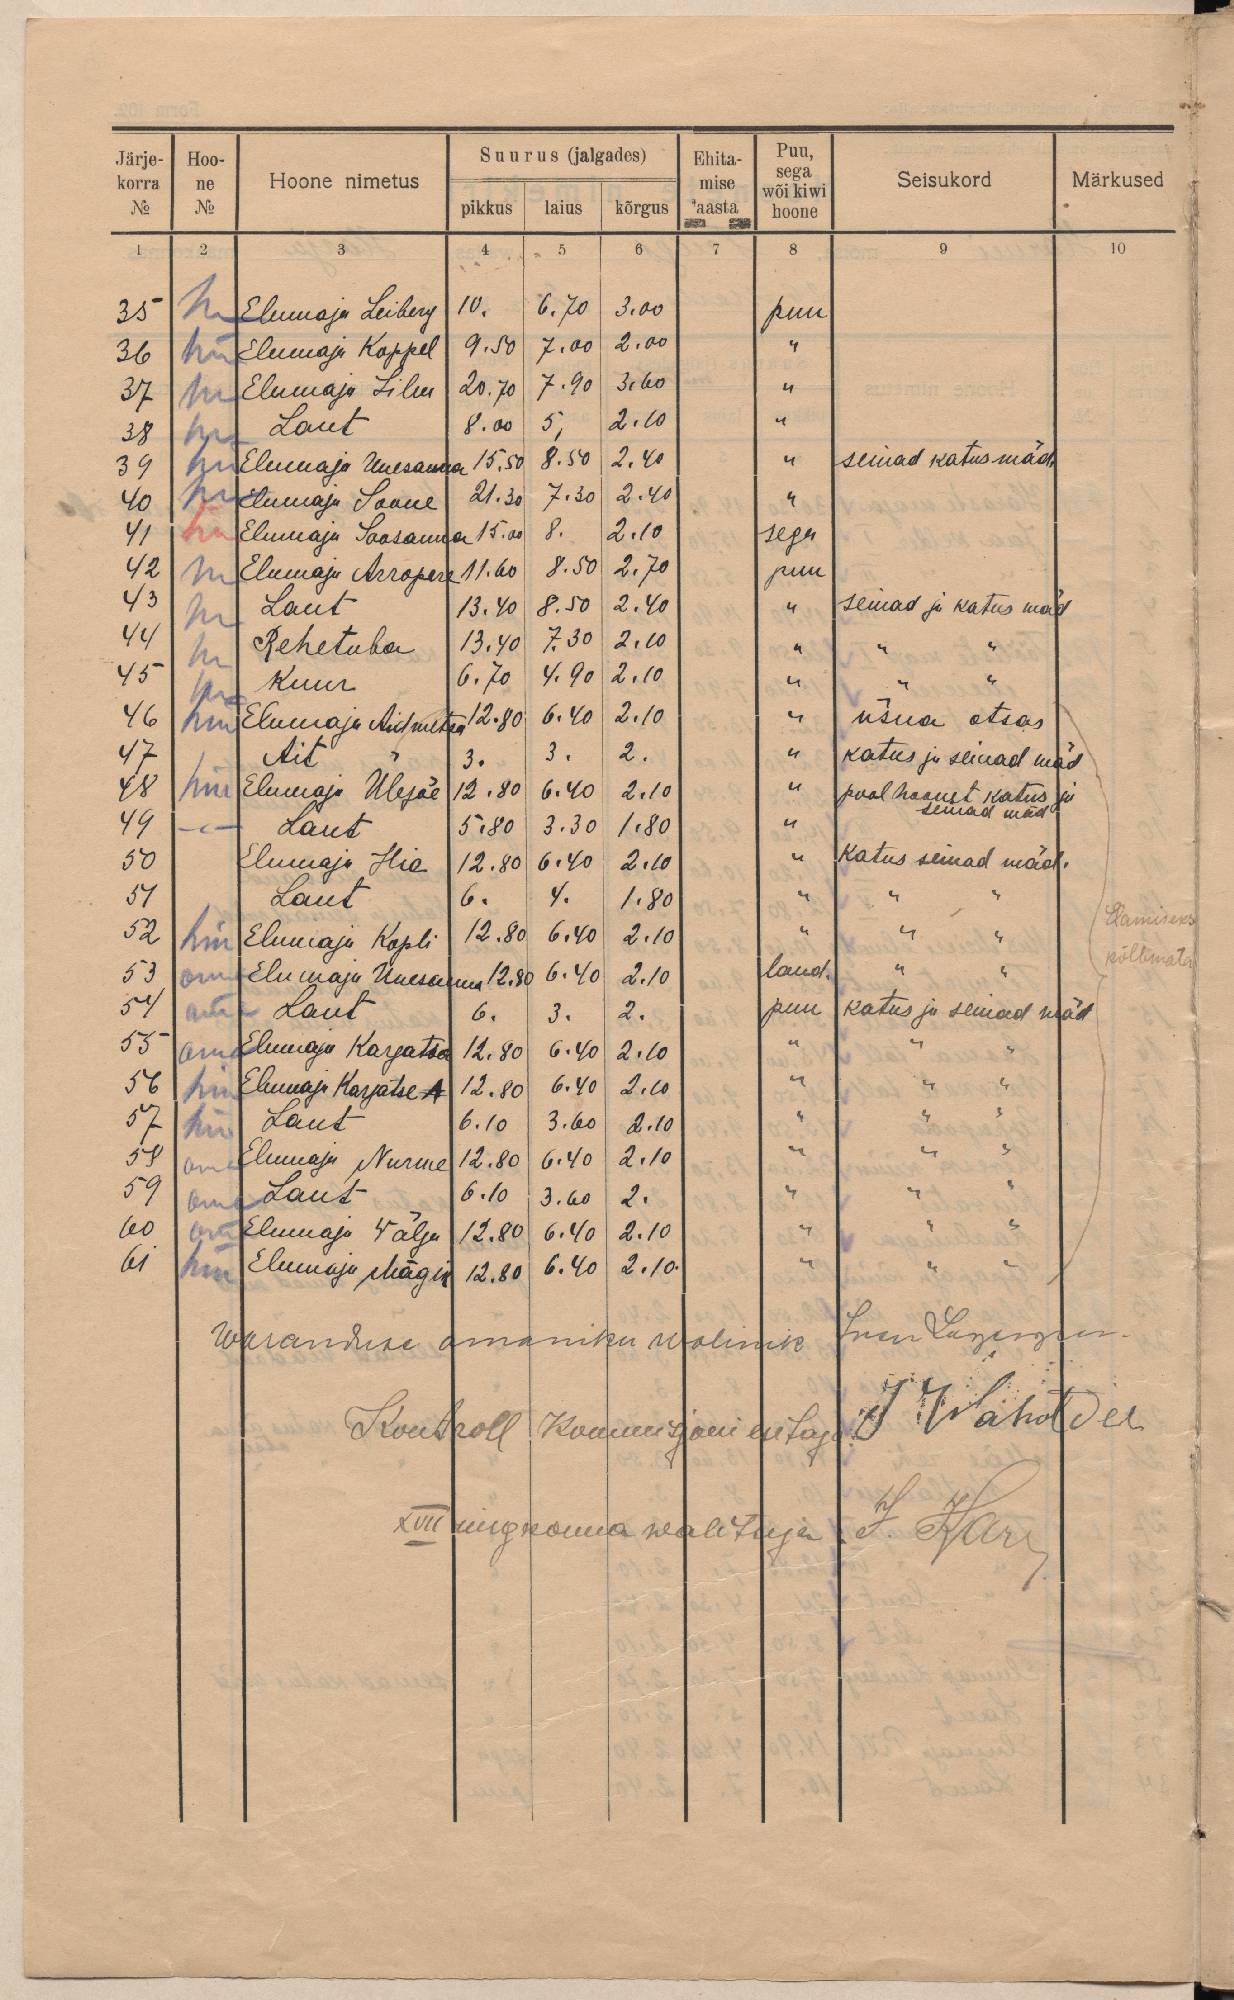 Järje-korra № | Hoo-ne № | Hoone nimetus | Suurus (jalgades) pikkus | laius | kõrgus | Ehita-mise aasta | Puu, sega wõi kiwi hoone | Seisukord | Märkused
1 | 2 | 3 | 4 | 5 | 6 | 7 | 8 | 9 | 10
35 Elumaja Leiberg 10. 6.70 3.00 puu
36 Elumaja Koppel 9.50 7.00 2.00 "
37 Elumaja Lilu 20.70 7.90 3.60 "
38 Laut 8.00 5, 2.10 "
39 Elumaja Uuesauna 15.50 8.50 2.40 " seinad katus mäd.
40 Elumaja Soone 21.30 7.30 2.40 "
41 Elumaja Soosauna 15.00 8. 2.10 sega
42 Elumaja Arropere 11.60 8.50 2.70 puu
43 Laut 13.40 8.50 2.40 " seinad ja katus mäd
44 Rehetuba 13.40 7.30 2.10 " " "
45 Kuur 6.70 4.90 2.10 " " "
46 Elumaja 12.80 6.40 2.10 " üsna otsas
47 Ait " 3. 3. 2. " katus ja seinad mäd
48 Elumaja Ülejõe 12.80 6.40 2.10 " pool hoonet katus ja
seinad mäd
49 Laut 5.80 3.30 1.80 "
50 Elumaja Hia 12.80 6.40 2.10 " Katus seinad mäd.
51 Laut 6. 4. 1.80 " " "
52 Elumaja Kopli 12.80 6.40 2.10 " " "
53 oma Elumaja Uuesauna 12.80 6.40 2.10 laud. " "
54 Laut 6. 3. 2. puu katus ja seinad mäd
55 oma Elumaja Karjatse 12.80 6.40 2.10 " " "
56 Elumaja Karjatse 12.80 6.40 2.10 " " "
57 Laut 6.10 3.60 2.10 " " "
58 oma Elumaja Nurme 12.80 6.40 2.10 " " "
59 oma Laut 6.10 3.60 2. " " "
60 Elumaja Wälja 12.80 6.40 2.10 " " "
61 Elumaja Mägi 12.80 6.40 2.10. " " "
Elamiseks
kõlbmata
Waranduse omaniku wolinik
Kontroll Kommisjoni esitaja
XVII ringkonna walitseja